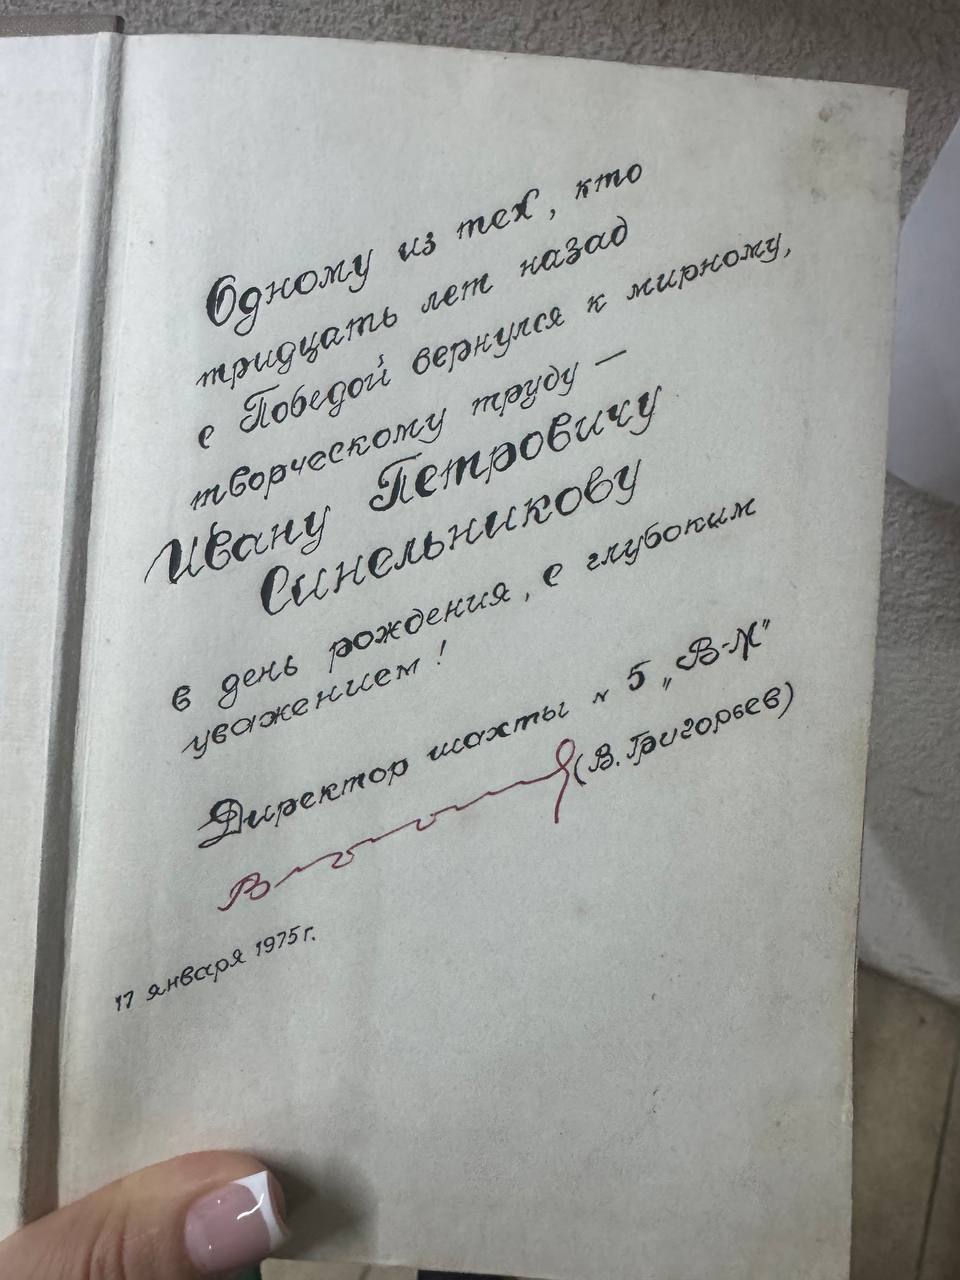 Одному из тех, кто
тридцать лет назад
с Победой вернулся к мирному,
творческому труду —
Ивану Петровичу
Синельникову
в день рождения, с глубоким
уважением!
Директор шахты № 5 „В-М"
(В. Григорьев)
17 января 1975 г.